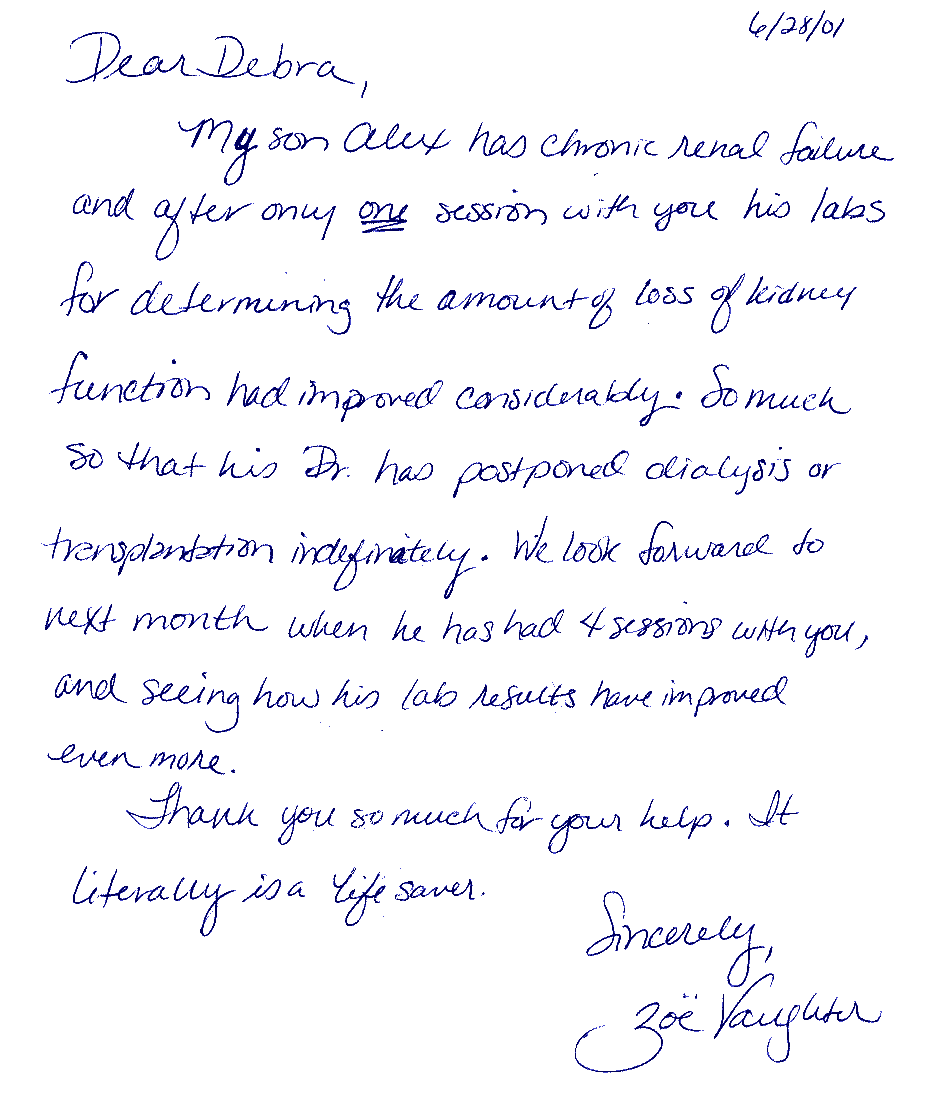 6/28/01
Dear Debra,
My son Alex has chronic renal failure
and after only one session with you his labs
for determining the amount of loss of kidney
function had improved considerably. So much
so that his Dr. has postponed dialysis or
transplantation indefinately. We look forward to
next month when he has had 4 sessions with you,
and seeing how his lab results have improved
even more.
Thank you so much for your help. It
literally is a life saver.
Sincerely,
Zoë Vaughter